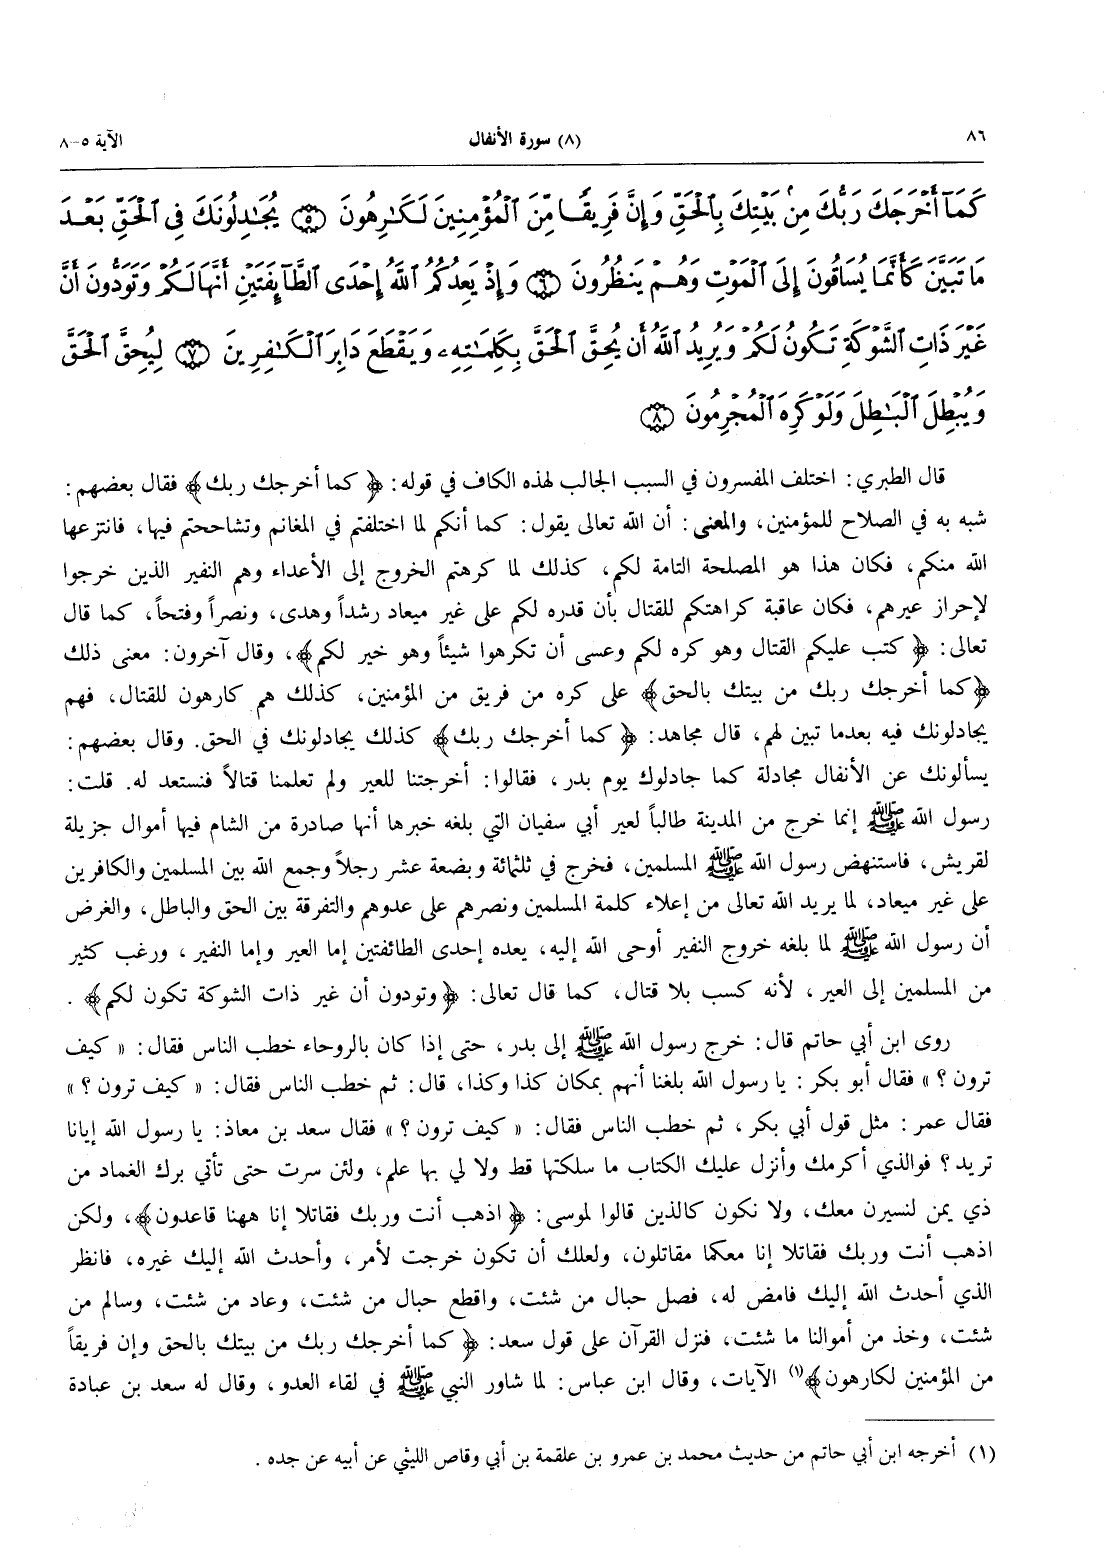 ٨٦ (٨) سورة الأنفال الآية ٥-٨
كَمَآ أَخْرَجَكَ رَبُّكَ مِنۢ بَيْتِكَ بِٱلْحَقِّ وَإِنَّ فَرِيقًا مِّنَ ٱلْمُؤْمِنِينَ لَكَٰرِهُونَ ۝٥ يُجَٰدِلُونَكَ فِى ٱلْحَقِّ بَعْدَ
مَا تَبَيَّنَ كَأَنَّمَا يُسَاقُونَ إِلَى ٱلْمَوْتِ وَهُمْ يَنظُرُونَ ۝٦ وَإِذْ يَعِدُكُمُ ٱللَّهُ إِحْدَى ٱلطَّآئِفَتَيْنِ أَنَّهَا لَكُمْ وَتَوَدُّونَ أَنَّ
غَيْرَ ذَاتِ ٱلشَّوْكَةِ تَكُونُ لَكُمْ وَيُرِيدُ ٱللَّهُ أَن يُحِقَّ ٱلْحَقَّ بِكَلِمَٰتِهِۦ وَيَقْطَعَ دَابِرَ ٱلْكَٰفِرِينَ ۝٧ لِيُحِقَّ ٱلْحَقَّ
وَيُبْطِلَ ٱلْبَٰطِلَ وَلَوْ كَرِهَ ٱلْمُجْرِمُونَ ۝٨
قال الطبري: اختلف المفسرون في السبب الجالب لهذه الكاف في قوله: ﴿كما أخرجك ربك﴾ فقال بعضهم:
شبه به في الصلاح للمؤمنين، والمعنى: أن الله تعالى يقول: كما أنكم لما اختلفتم في المغانم وتشاححتم فيها، فانتزعها
الله منكم، فكان هذا هو المصلحة التامة لكم، كذلك لما كرهتم الخروج إلى الأعداء وهم النفير الذين خرجوا
لإحراز عيرهم، فكان عاقبة كراهتكم للقتال بأن قدره لكم على غير ميعاد رشداً وهدى، ونصراً وفتحاً، كما قال
تعالى: ﴿كتب عليكم القتال وهو كره لكم وعسى أن تكرهوا شيئاً وهو خير لكم﴾، وقال آخرون: معنى ذلك
﴿كما أخرجك ربك من بيتك بالحق﴾ على كره من فريق من المؤمنين، كذلك هم كارهون للقتال، فهم
يجادلونك فيه بعدما تبين لهم، قال مجاهد: ﴿كما أخرجك ربك﴾ كذلك يجادلونك في الحق. وقال بعضهم:
يسألونك عن الأنفال مجادلة كما جادلوك يوم بدر، فقالوا: أخرجتنا للعير ولم تعلمنا قتالاً فنستعد له. قلت:
رسول الله ﷺ إنما خرج من المدينة طالباً لعير أبي سفيان التي بلغه خبرها أنها صادرة من الشام فيها أموال جزيلة
لقريش، فاستنهض رسول الله ﷺ المسلمين، فخرج في ثلثمائة وبضعة عشر رجلاً وجمع الله بين المسلمين والكافرين
على غير ميعاد، لما يريد الله تعالى من إعلاء كلمة المسلمين ونصرهم على عدوهم والتفرقة بين الحق والباطل، والغرض
أن رسول الله ﷺ لما بلغه خروج النفير أوحى الله إليه، يعده إحدى الطائفتين إما العير وإما النفير، ورغب كثير
من المسلمين إلى العير، لأنه كسب بلا قتال، كما قال تعالى: ﴿وتودون أن غير ذات الشوكة تكون لكم﴾.
روى ابن أبي حاتم قال: خرج رسول الله ﷺ إلى بدر، حتى إذا كان بالروحاء خطب الناس فقال: «كيف
ترون؟» فقال أبو بكر: يا رسول الله بلغنا أنهم بمكان كذا وكذا، قال: ثم خطب الناس فقال: «كيف ترون؟»
فقال عمر: مثل قول أبي بكر، ثم خطب الناس فقال: «كيف ترون؟» فقال سعد بن معاذ: يا رسول الله إيانا
تريد؟ فوالذي أكرمك وأنزل عليك الكتاب ما سلكتها قط ولا لي بها علم، ولئن سرت حتى تأتي برك الغماد من
ذي يمن لنسيرن معك، ولا نكون كالذين قالوا لموسى: ﴿اذهب أنت وربك فقاتلا إنا ههنا قاعدون﴾، ولكن
اذهب أنت وربك فقاتلا إنا معكما مقاتلون، ولعلك أن تكون خرجت لأمر، وأحدث الله إليك غيره، فانظر
الذي أحدث الله إليك فامض له، فصل حبال من شئت، واقطع حبال من شئت، وعاد من شئت، وسالم من
شئت، وخذ من أموالنا ما شئت، فنزل القرآن على قول سعد: ﴿كما أخرجك ربك من بيتك بالحق وإن فريقاً
من المؤمنين لكارهون﴾(١) الآيات، وقال ابن عباس: لما شاور النبي ﷺ في لقاء العدو، وقال له سعد بن عبادة
(١) أخرجه ابن أبي حاتم من حديث محمد بن عمرو بن علقمة بن أبي وقاص الليثي عن أبيه عن جده.